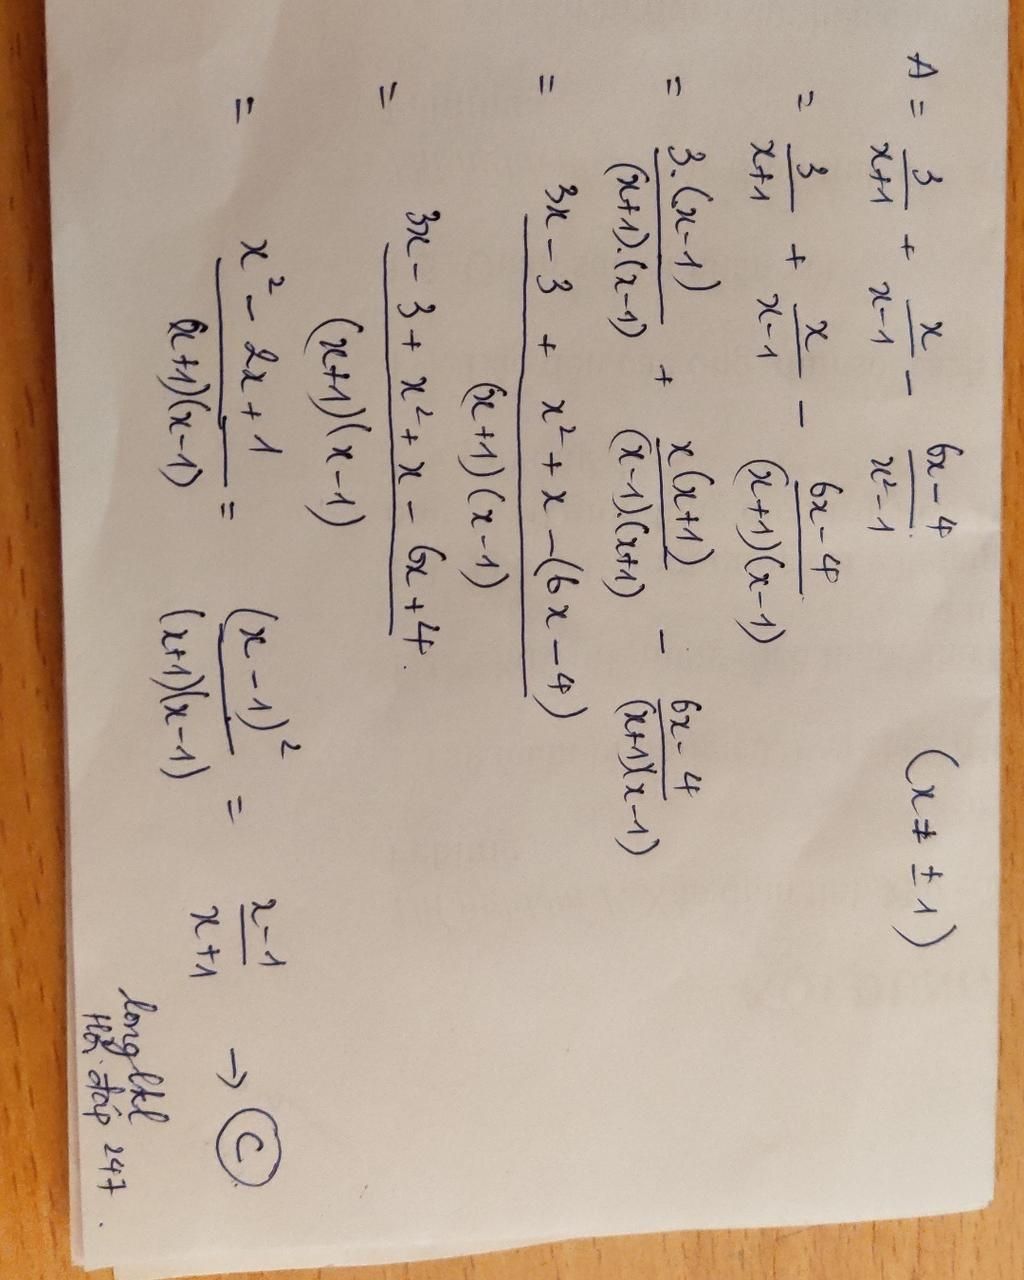 A = 3/(x+1) + x/(x-1) - (6x-4)/(x²-1) (x ≠ ±1)
= 3/(x+1) + x/(x-1) - (6x-4)/((x+1)(x-1))
= 3.(x-1)/((x+1).(x-1)) + x(x+1)/((x-1).(x+1)) - (6x-4)/((x+1)(x-1))
= (3x-3 + x²+x-(6x-4))/((x+1)(x-1))
= (3x-3+x²+x-6x+4)/((x+1)(x-1))
= (x²-2x+1)/((x+1)(x-1)) = (x-1)²/((x+1)(x-1)) = (x-1)/(x+1) → C
longlkl
Hỏi đáp 247.